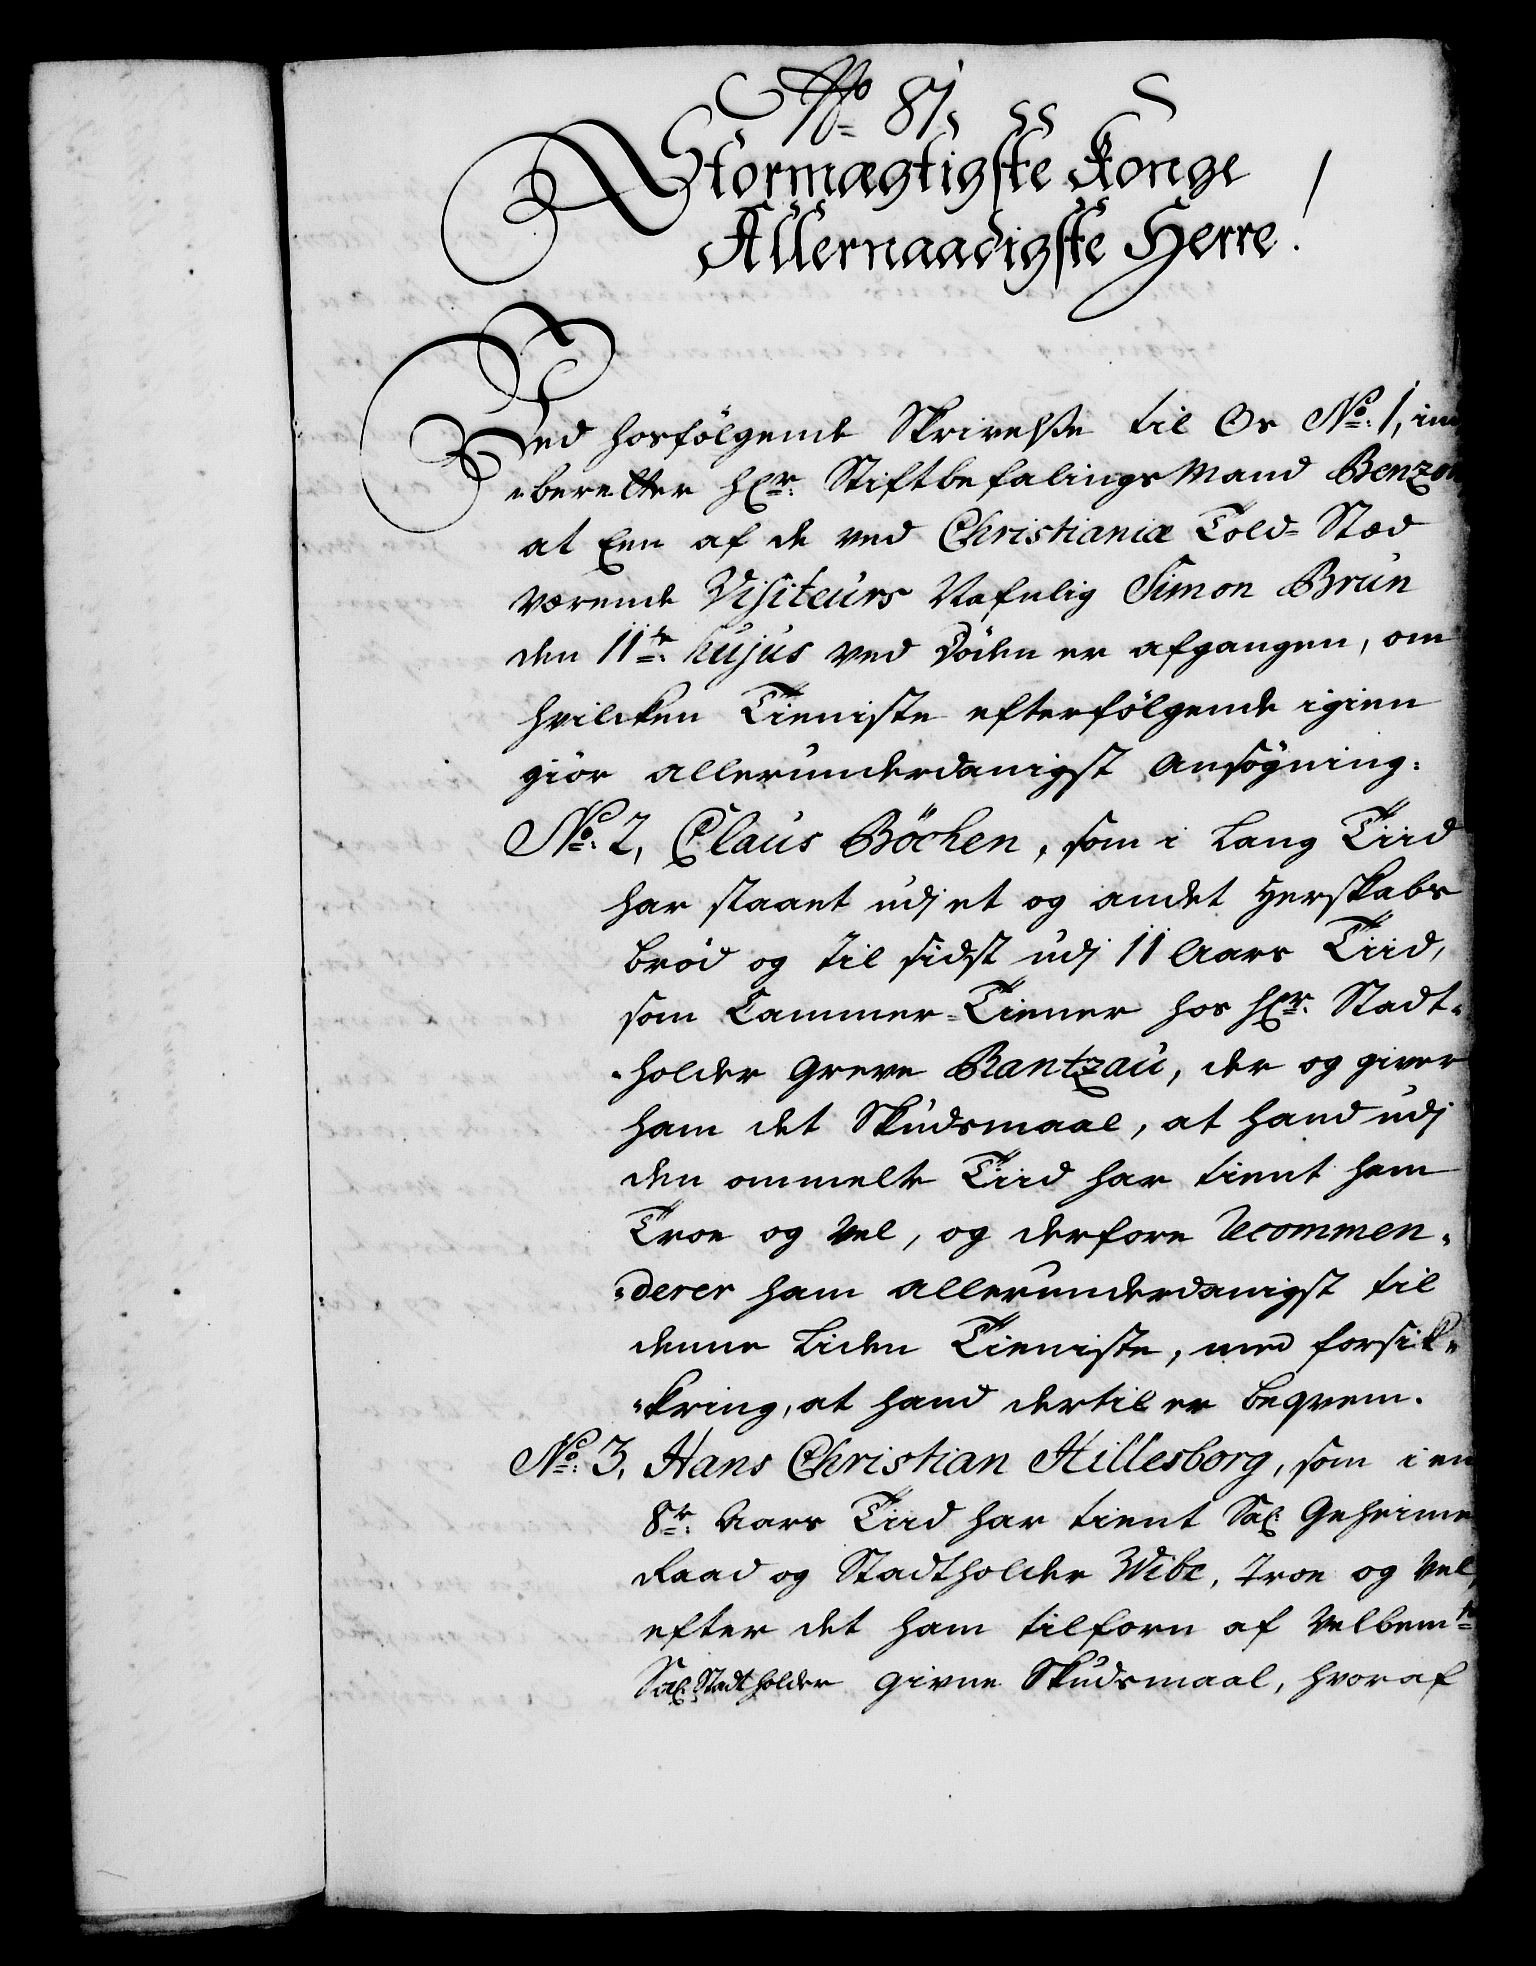 No 87.
Stormægtigste Konge
Allernaadigste Herre!
Ved hosfölgende Skrivelße til Os No: 1, ind
-beretter Hr: Stiftbefalings Mand Benzon
at Een af de ved Christianiæ Told-Stæd
værende Visiteurs Nafnlig Simon Brun
den 11te: hujus ved Döden er afgangen, om
hvilcken Tieniste efterfölgende igien
giör allerunderdanigst Ansögning:
No: 2, Claus Böchen, som i lang Tiid
har staaet udj et og andet Herskabs
bröd og til sidst udj 11 Aars Tiid,
som Cammer-Tiener hos Hr: Stadt-
-holder Greve Rantzau, der og giver
ham det Skudsmaal, at hand udj
den ommelte Tiid har tient ham
Troe og vel, og derfore recommen-
-derer ham allerunderdanigst til
denne liden Tieniste, med forsik-
-kring, at hand dertil er beqvem.
No: 3, Hans Christian Hillesborg, som i en
8te: Aars Tiid har tient Sal: Geheime
Raad og Stadtholder Wibe, Troe og vel,
efter det ham tilforn af velbemte
Sal: Stadtholder givne Skudsmaal, hvoraf